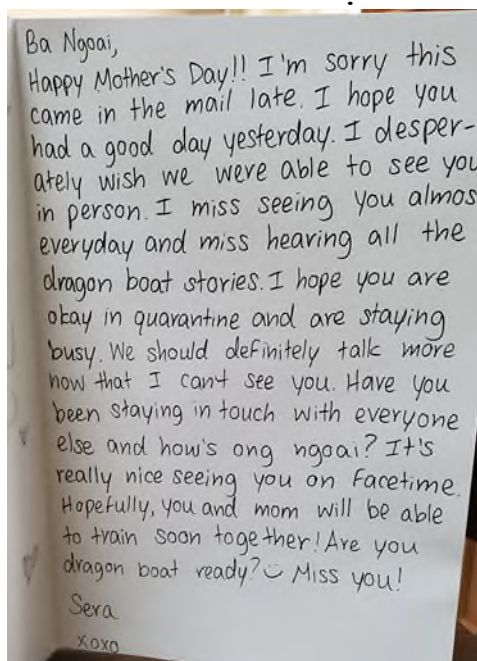 Ba Ngoai,
Happy Mother's Day!! I'm sorry this
came in the mail late. I hope you
had a good day yesterday. I desper-
ately wish we were able to see you
in person. I miss seeing you almos
everyday and miss hearing all the
dragon boat stories. I hope you are
okay in quarantine and are staying
busy. We should definitely talk more
now that I can't see you. Have you
been staying in touch with everyone
else and how's ong ngoai? It's
really nice seeing you on Facetime.
Hopefully, you and mom will be able
to train soon together! Are you
dragon boat ready? Miss you!
Sera
xoxo